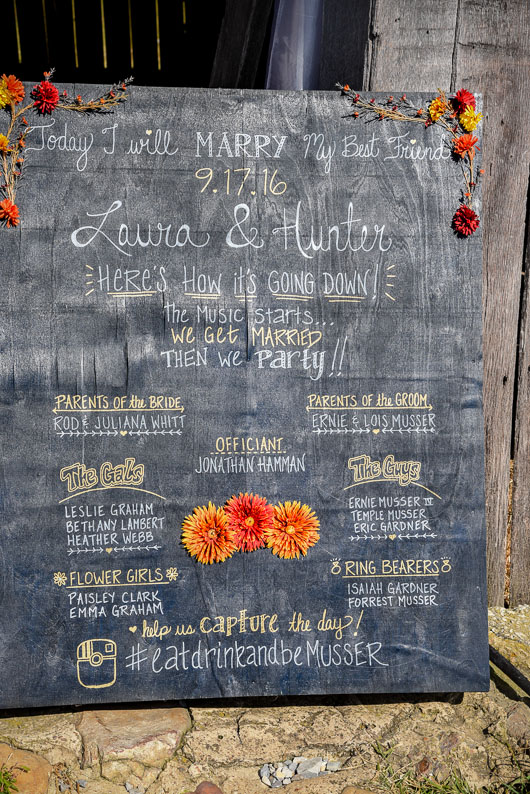 Today I will MARRY My Best Friend
9.17.16
Laura & Hunter
HERE'S HOW IT'S GOING DOWN!
the Music starts...
we Get MARRIED
THEN we Party!!
PARENTS of the BRIDE
ROD & JULIANA WHITT
PARENTS of the GROOM
ERNIE & LOIS MUSSER
OFFICIANT
JONATHAN HAMMAN
The GaLs
LESLIE GRAHAM
BETHANY LAMBERT
HEATHER WEBB
The Guys
ERNIE MUSSER IV
TEMPLE MUSSER
ERIC GARDNER
FLOWER GIRLS
PAISLEY CLARK
EMMA GRAHAM
RING BEARERS
ISAIAH GARDNER
FORREST MUSSER
help us capture the day!
#eatdrinkandbeMUSSER